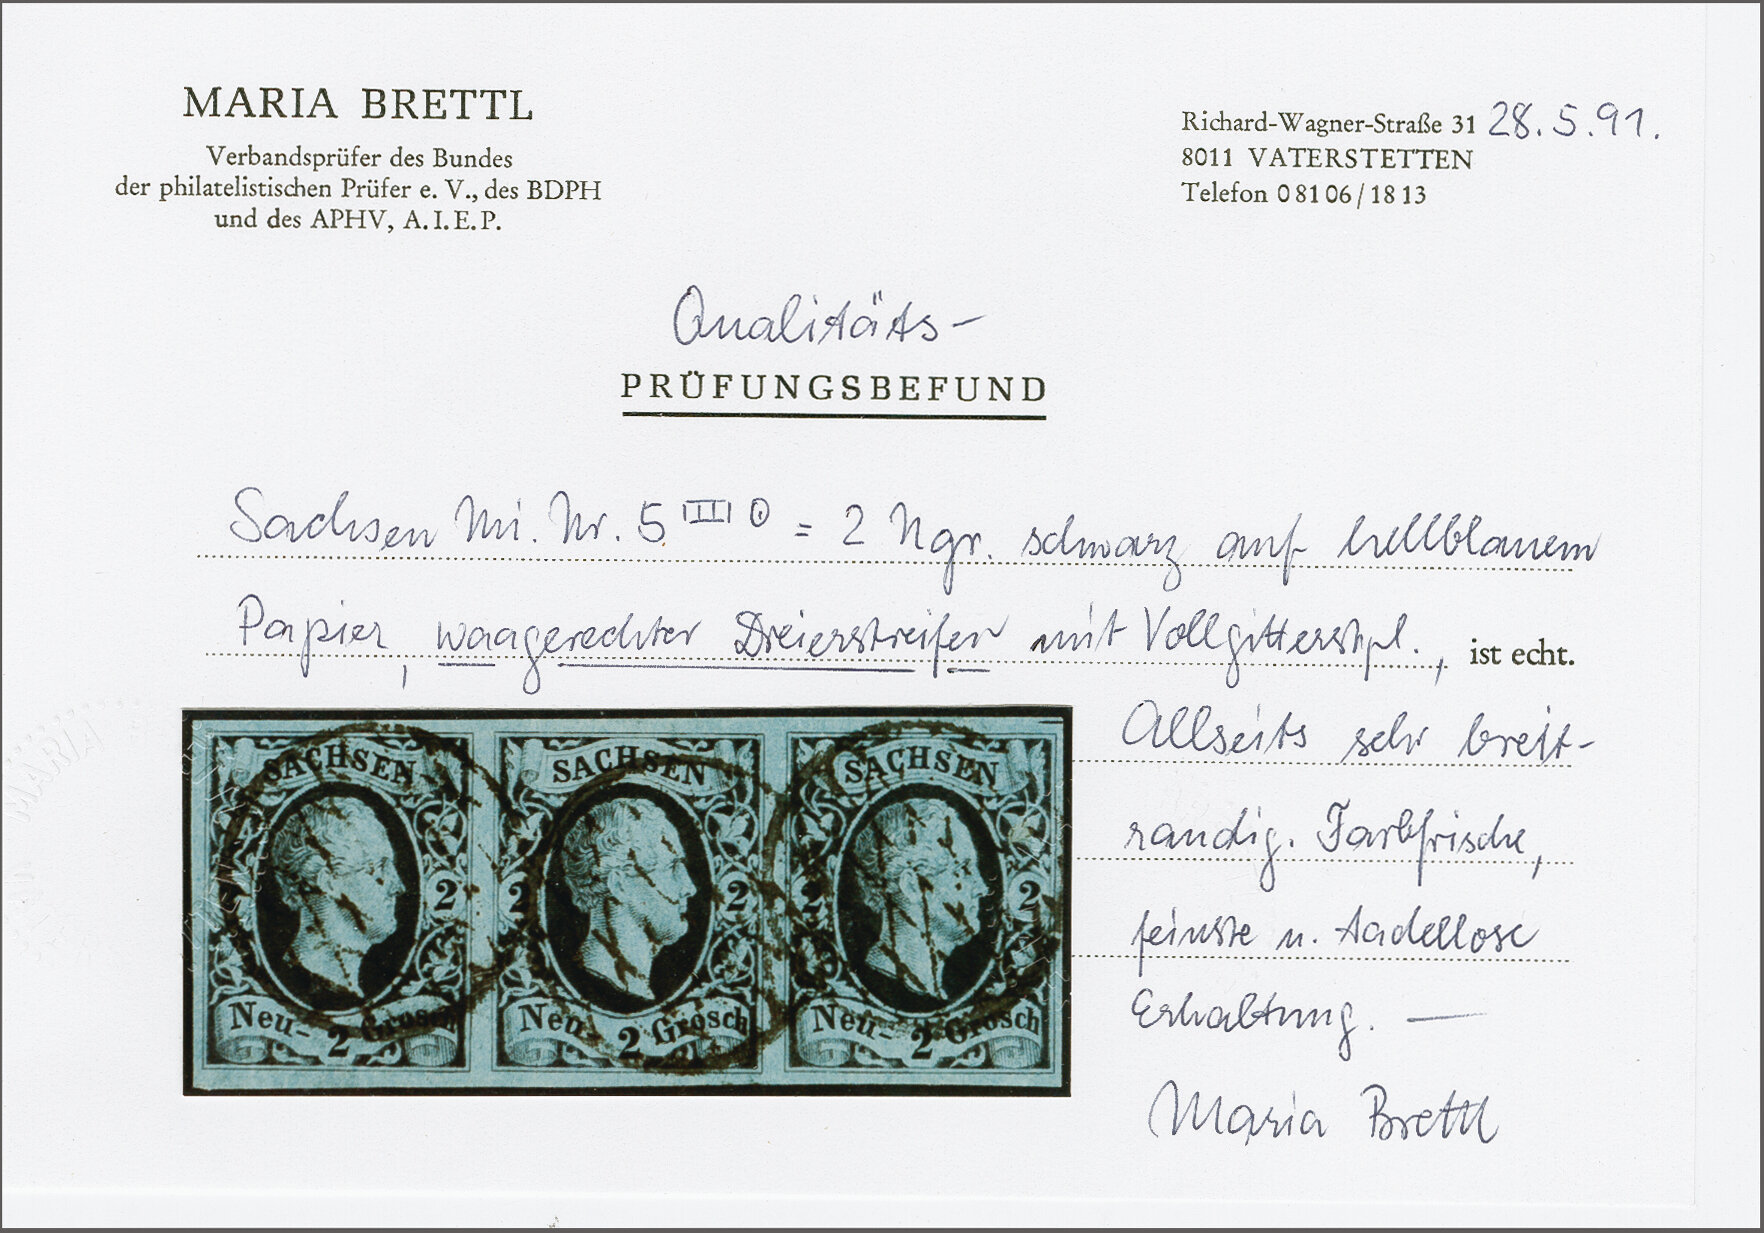 MARIA BRETTL
Verbandsprüfer des Bundes
der philatelistischen Prüfer e. V., des BDPH
und des APHV, A.I.E.P.
Richard-Wagner-Straße 31 28.5.91.
8011 VATERSTETTEN
Telefon 08106/1813
Qualitäts-
PRÜFUNGSBEFUND
Sachsen Mi. Nr. 5 III ⊙ = 2 Ngr. schwarz auf hellblauem
Papier, waagerechter Dreierstreifen mit Vollgitterstpl., ist echt.
Allseits sehr breit-
randig. Farbfrische,
feinste u. tadellose
Erhaltung. —
Maria Brettl
SACHSEN SACHSEN SACHSEN
2 2 2 2 2
Neu- 2 Grosch Neu- 2 Grosch Neu- 2 Grosch
MARIA